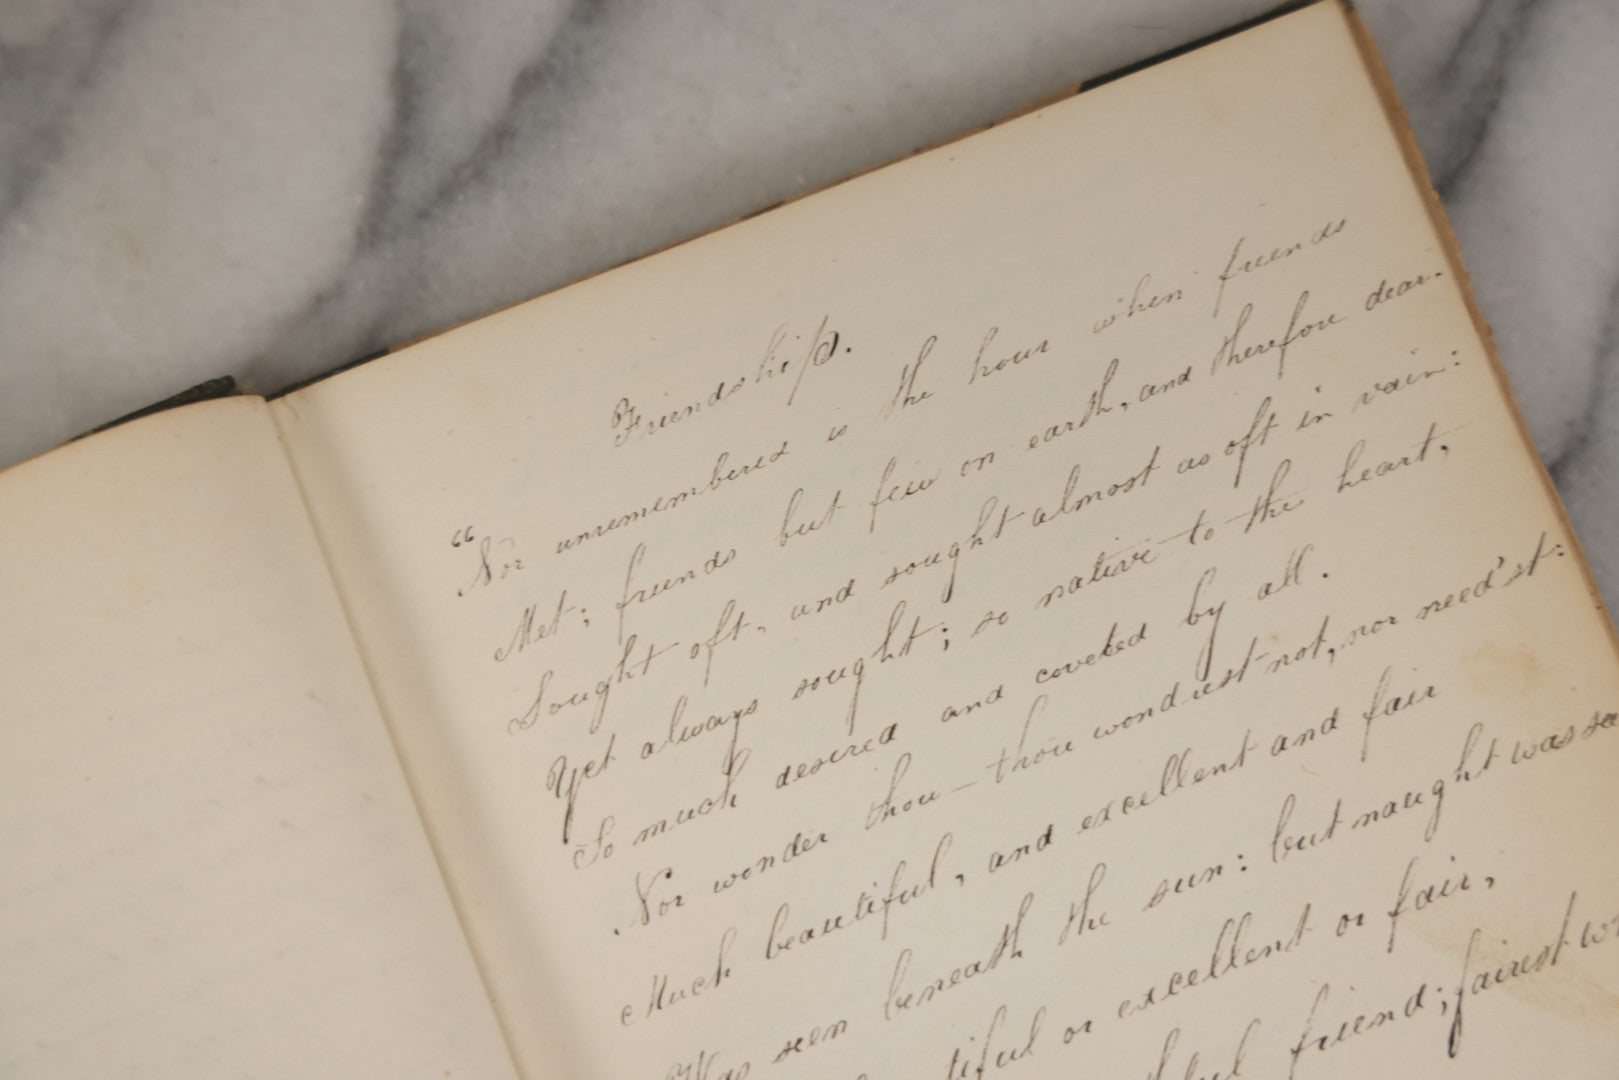 Friendship.
“Nor unremembered is the hour when friends
Met; friends but few on earth, and therefore dear.
Sought oft, and sought almost as oft in vain:
Yet always sought; so native to the heart,
So much desired and coveted by all.
Nor wonder thou—thou wondrest not, nor need'st:
Much beautiful, and excellent and fair
Was seen beneath the sun: but naught was se
tiful or excellent or fair,
thful friend; fairest w